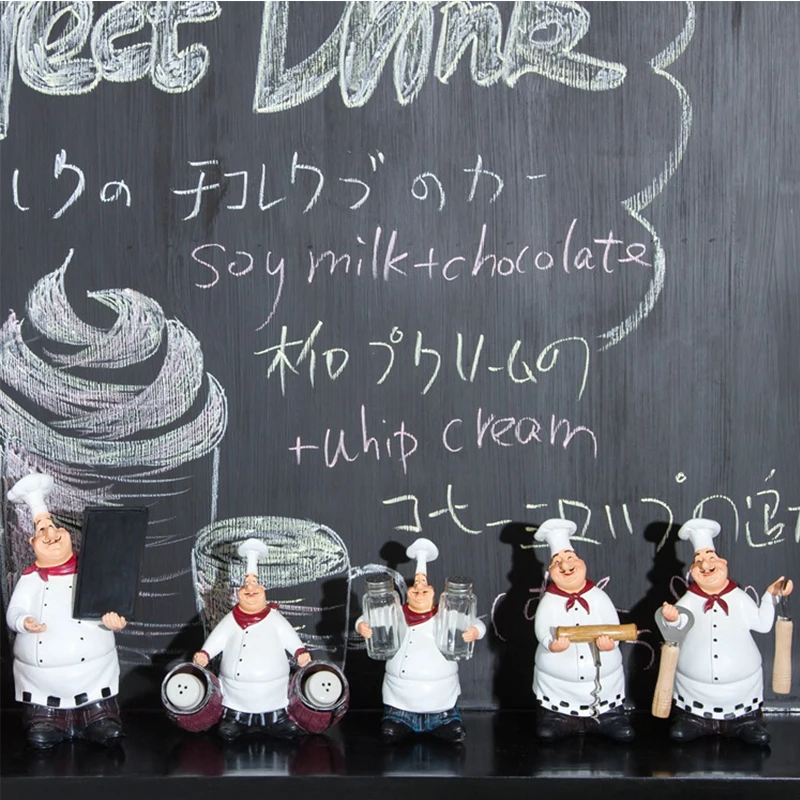 eet Drink
ルクの チコレクブ のカー
soy milk+chocolate
プクリームの
+whip cream
コヒーニロップの追